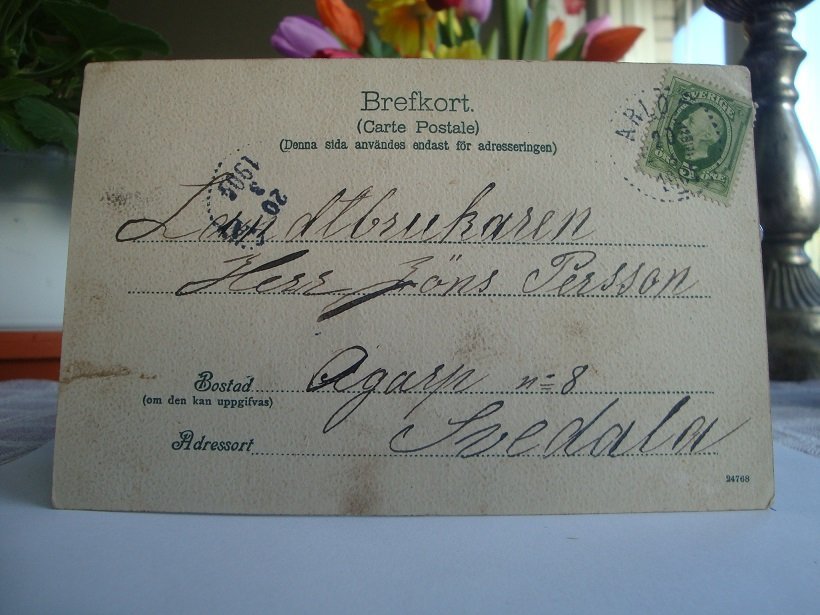 Brefkort.
(Carte Postale)
(Denna sida användes endast för adresseringen)
SVERIGE
ARLÖ
20
3
1904
Landtbrukaren
Herr Jöns Persson
Bostad Agarp n=8
(om den kan uppgifvas)
Adressort Svedala
24768